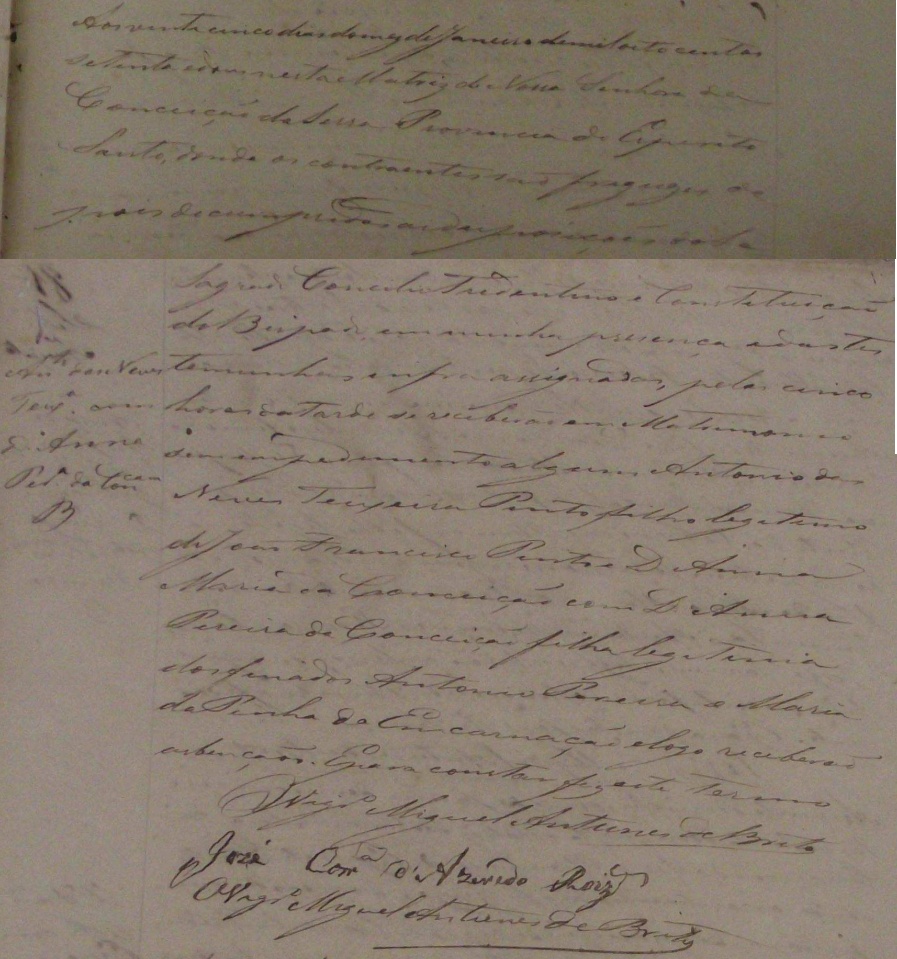 Aos vinte cinco dias do mez de Janeiro de mil oito centos
setenta e dous nesta Matriz de Nossa Senhora da
Conceição da Serra Provincia do Espirito
Santo, donde os contraentes são freguezes de
pois de cumpridas as disposições do
Sagrado Concilio Tridentino e Constituição
do Bispado, em minha presença e das tes
temunhas infra assignadas, pelas cinco
horas da tarde se receberão em Matrimonio
sem impedimento algum Antonio das
Neves Teixeira Pinto filho legitimo
de João Francisco Pinto e D. Anna
Maria da Conceição com D. Anna
Pereira da Conceição filha legitima
dos finados Antonio Pereira e Maria
da Penha da Encarnação e logo receberão
as bençãos. E para constar fiz este termo
O Vigrº Miguel Antunes de Brito
José Corrª d'Azevedo Roiz
O Vigrº Miguel Antunes de Brito
Antº das Neves
Teixª com
D. Anna
Perª da Concam